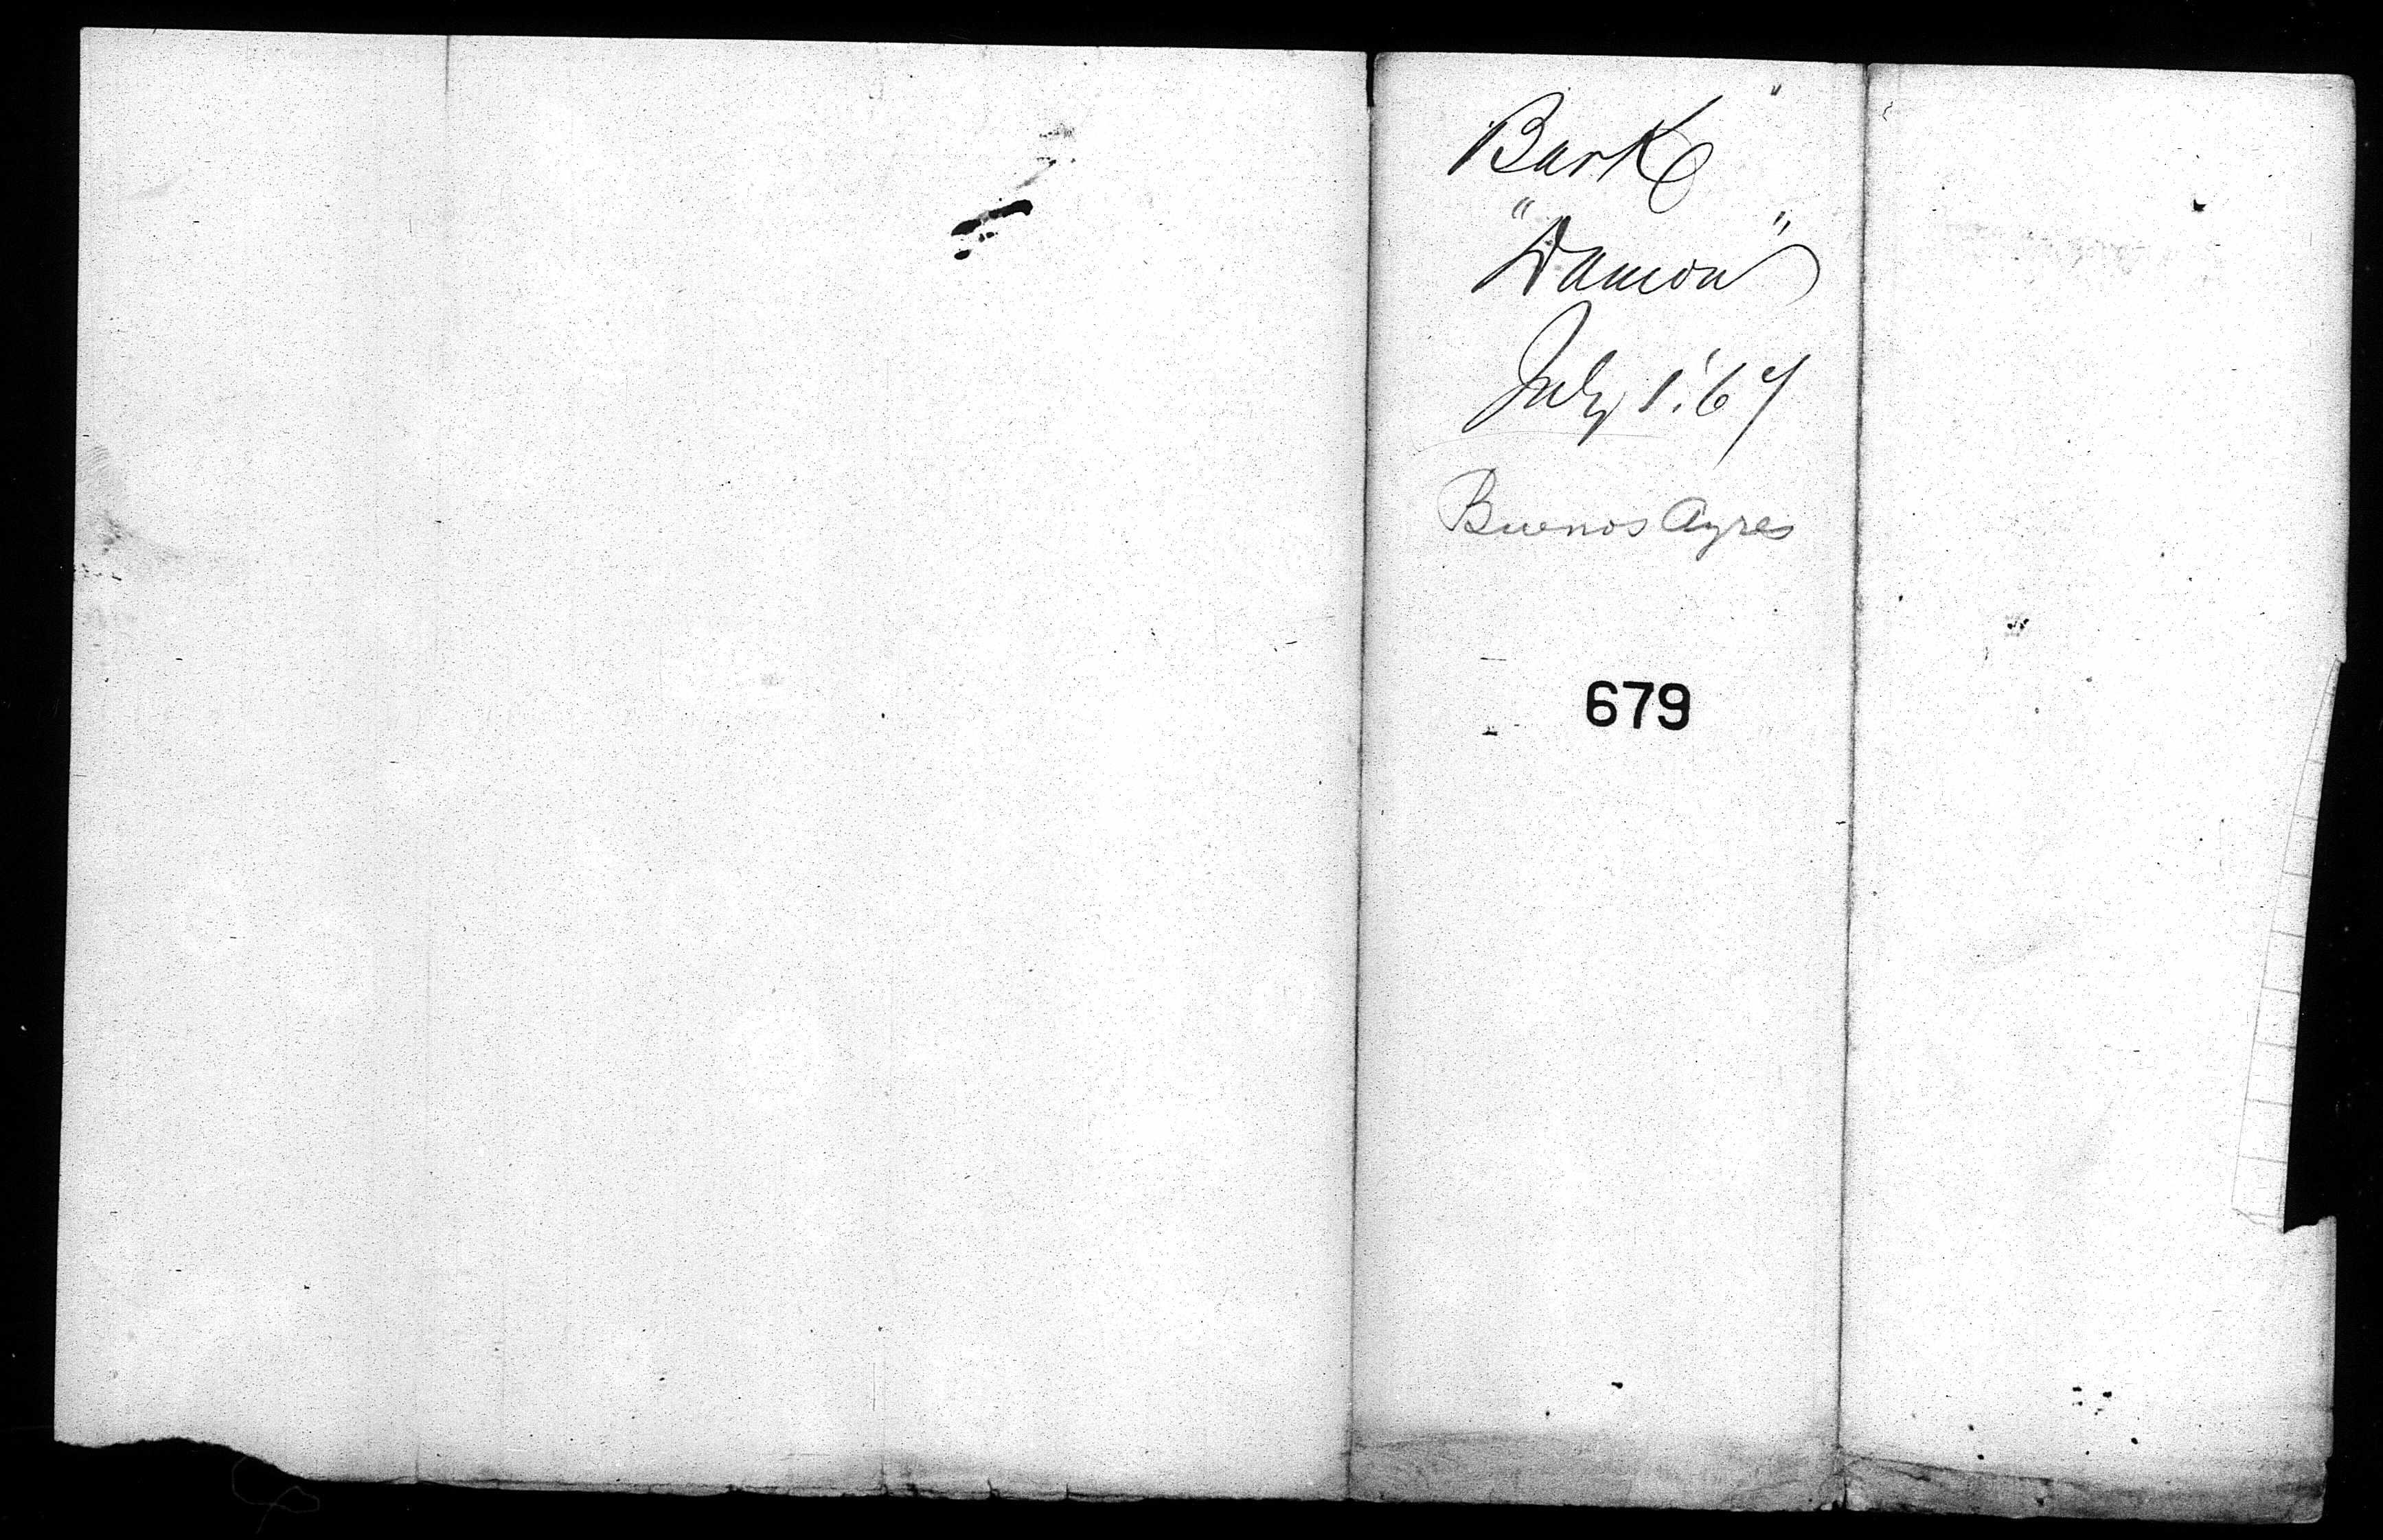 Bark
"Damon"
July 1. '67
Buenos Ayres
679